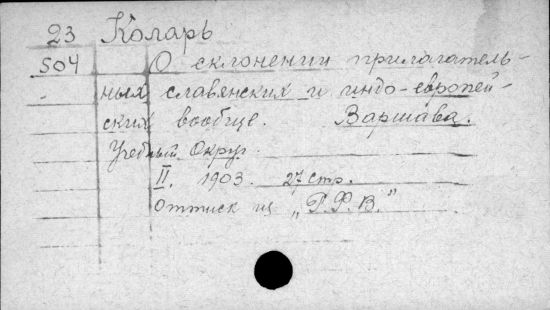 23 Коларь
504 О склонении прилагатель-
ных славянских и индо-европей-
ских вообще. Варшава.
Учебный Округ.
II. 1903. 27 стр.
Оттиск из „Р.Ф.В."